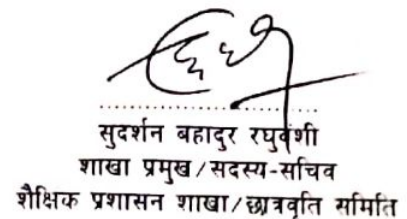 सुदर्शन बहादुर रघुवंशी
शाखा प्रमुख/सदस्य-सचिव
शैक्षिक प्रशासन शाखा/छात्रवृति समिति